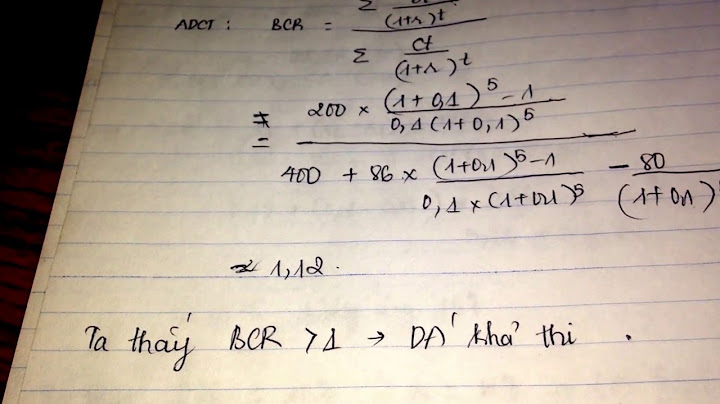 ADCT : BCR = Σ /(1+r)^t / Σ Ct/(1+r)^t
= 200 × ((1+0,1)^5 - 1)/(0,1(1+0,1)^5) / 400 + 86 × ((1+0,1)^5 - 1)/(0,1 × (1+0,1)^5) - 80/(1+0,1)
≈ 1,12 .
Ta thấy BCR > 1 → DA khả thi .